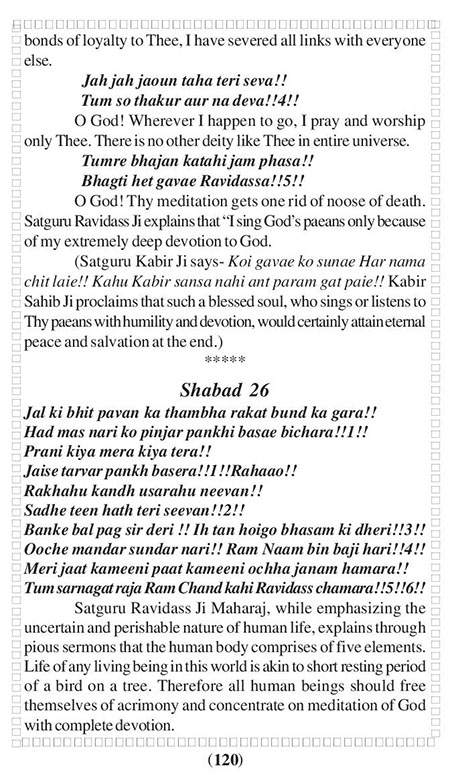 bonds of loyalty to Thee, I have severed all links with everyone
else.
Jah jah jaoun taha teri seva!!
Tum so thakur aur na deva!!4!!
O God! Wherever I happen to go, I pray and worship
only Thee. There is no other deity like Thee in entire universe.
Tumre bhajan katahi jam phasa!!
Bhagti het gavae Ravidassa!!5!!
O God! Thy meditation gets one rid of noose of death.
Satguru Ravidass Ji explains that “I sing God’s paeans only because
of my extremely deep devotion to God.
(Satguru Kabir Ji says- Koi gavae ko sunae Har nama
chit laie!! Kahu Kabir sansa nahi ant param gat paie!! Kabir
Sahib Ji proclaims that such a blessed soul, who sings or listens to
Thy paeans with humility and devotion, would certainly attain eternal
peace and salvation at the end.)
*****
Shabad 26
Jal ki bhit pavan ka thambha rakat bund ka gara!!
Had mas nari ko pinjar pankhi basae bichara!!1!!
Prani kiya mera kiya tera!!
Jaise tarvar pankh basera!!1!!Rahaao!!
Rakhahu kandh usarahu neevan!!
Sadhe teen hath teri seevan!!2!!
Banke bal pag sir deri !! Ih tan hoigo bhasam ki dheri!!3!!
Ooche mandar sundar nari!! Ram Naam bin baji hari!!4!!
Meri jaat kameeni paat kameeni ochha janam hamara!!
Tum sarnagat raja Ram Chand kahi Ravidass chamara!!5!!6!!
Satguru Ravidass Ji Maharaj, while emphasizing the
uncertain and perishable nature of human life, explains through
pious sermons that the human body comprises of five elements.
Life of any living being in this world is akin to short resting period
of a bird on a tree. Therefore all human beings should free
themselves of acrimony and concentrate on meditation of God
with complete devotion.
(120)